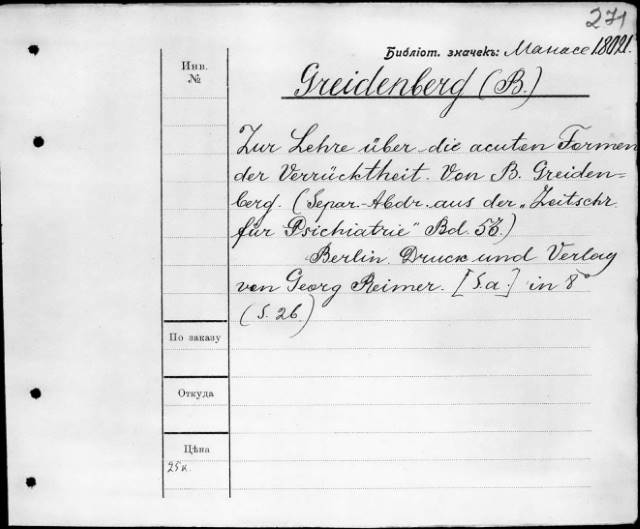 271
Библіот. значекъ: Манасе 18021.
Инв.
№
Greidenberg (B.)
Zur Lehre über die acuten Formen
der Verrücktheit. Von B. Greiden=
berg. (Separ.-Abdr. aus der „Zeitschr.
für Psichiatrie" Bd. 56.)
Berlin. Druck und Verlag
von Georg Reimer. [S.a.] in 8°
(S. 26.)
По заказу
Откуда
Цѣна
25 к.